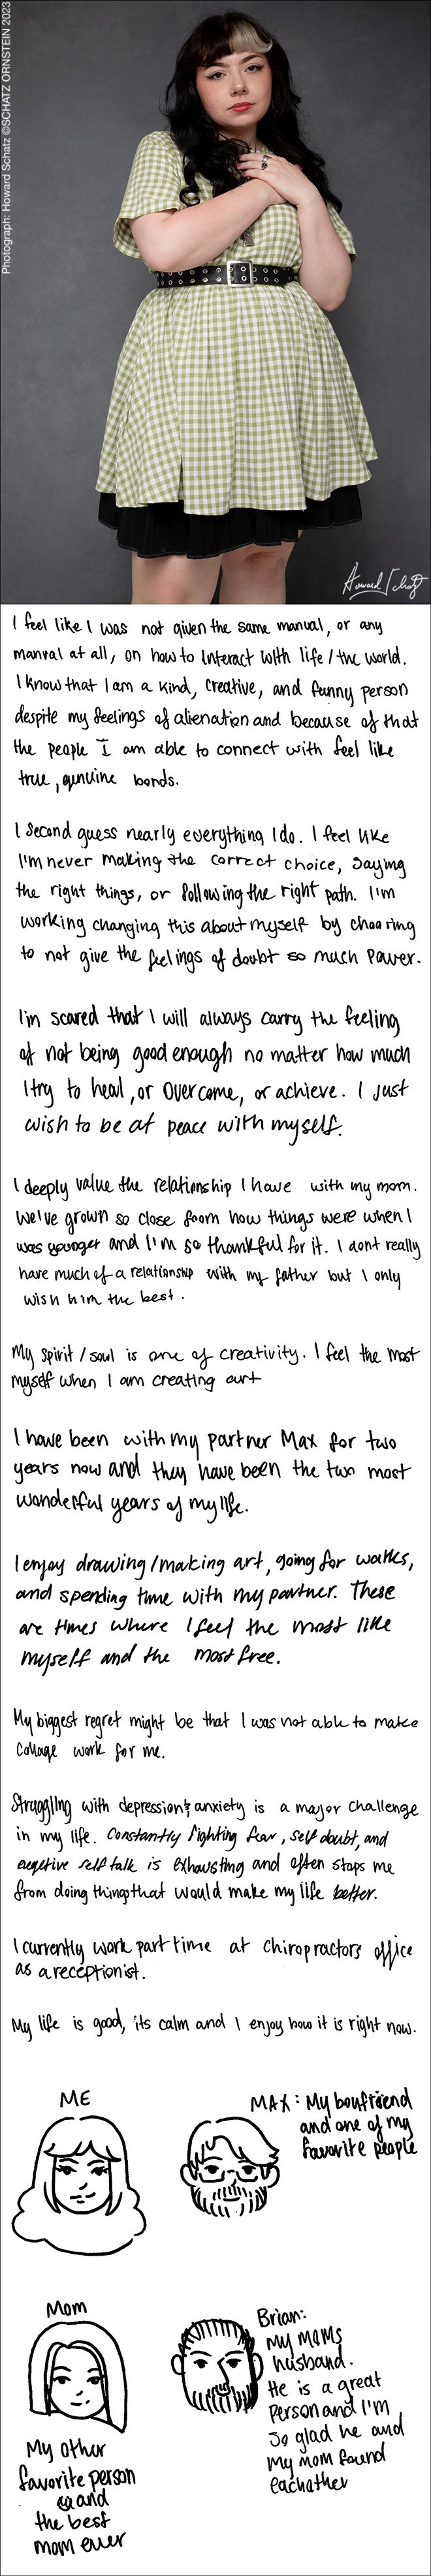 Photograph: Howard Schatz ©SCHATZ ORNSTEIN 2023
Howard Schatz
I feel like I was not given the same manual, or any
manual at all, on how to interact with life/the world.
I know that I am a kind, creative, and funny person
despite my feelings of alienation and because of that
the people I am able to connect with feel like
true, genuine bonds.
I second guess nearly everything I do. I feel like
I'm never making the correct choice, saying
the right things, or following the right path. I'm
working changing this about myself by choosing
to not give the feelings of doubt so much power.
I'm scared that I will always carry the feeling
of not being good enough no matter how much
I try to heal, or overcome, or achieve. I just
wish to be at peace with myself.
I deeply value the relationship I have with my mom.
We've grown so close from how things were when I
was younger and I'm so thankful for it. I dont really
have much of a relationship with my father but I only
wish him the best.
My spirit/soul is one of creativity. I feel the most
myself when I am creating art
I have been with my partner Max for two
years now and they have been the two most
wonderful years of my life.
I enjoy drawing/making art, going for walks,
and spending time with my partner. These
are times where I feel the most like
myself and the most free.
My biggest regret might be that I was not able to make
collage work for me.
Struggling with depression & anxiety is a major challenge
in my life. Constantly fighting fear, self doubt, and
self talk is exhausting and often stops me
from doing things that would make my life better.
I currently work part time at chiropractors office
as a receptionist.
My life is good, its calm and I enjoy how it is right now.
ME
MAX: My boyfriend
and one of my
favorite people
Mom
My other
favorite person
and
the best
mom ever
Brian:
My MOMS
husband.
He is a great
person and I'm
so glad he and
my mom found
eachother